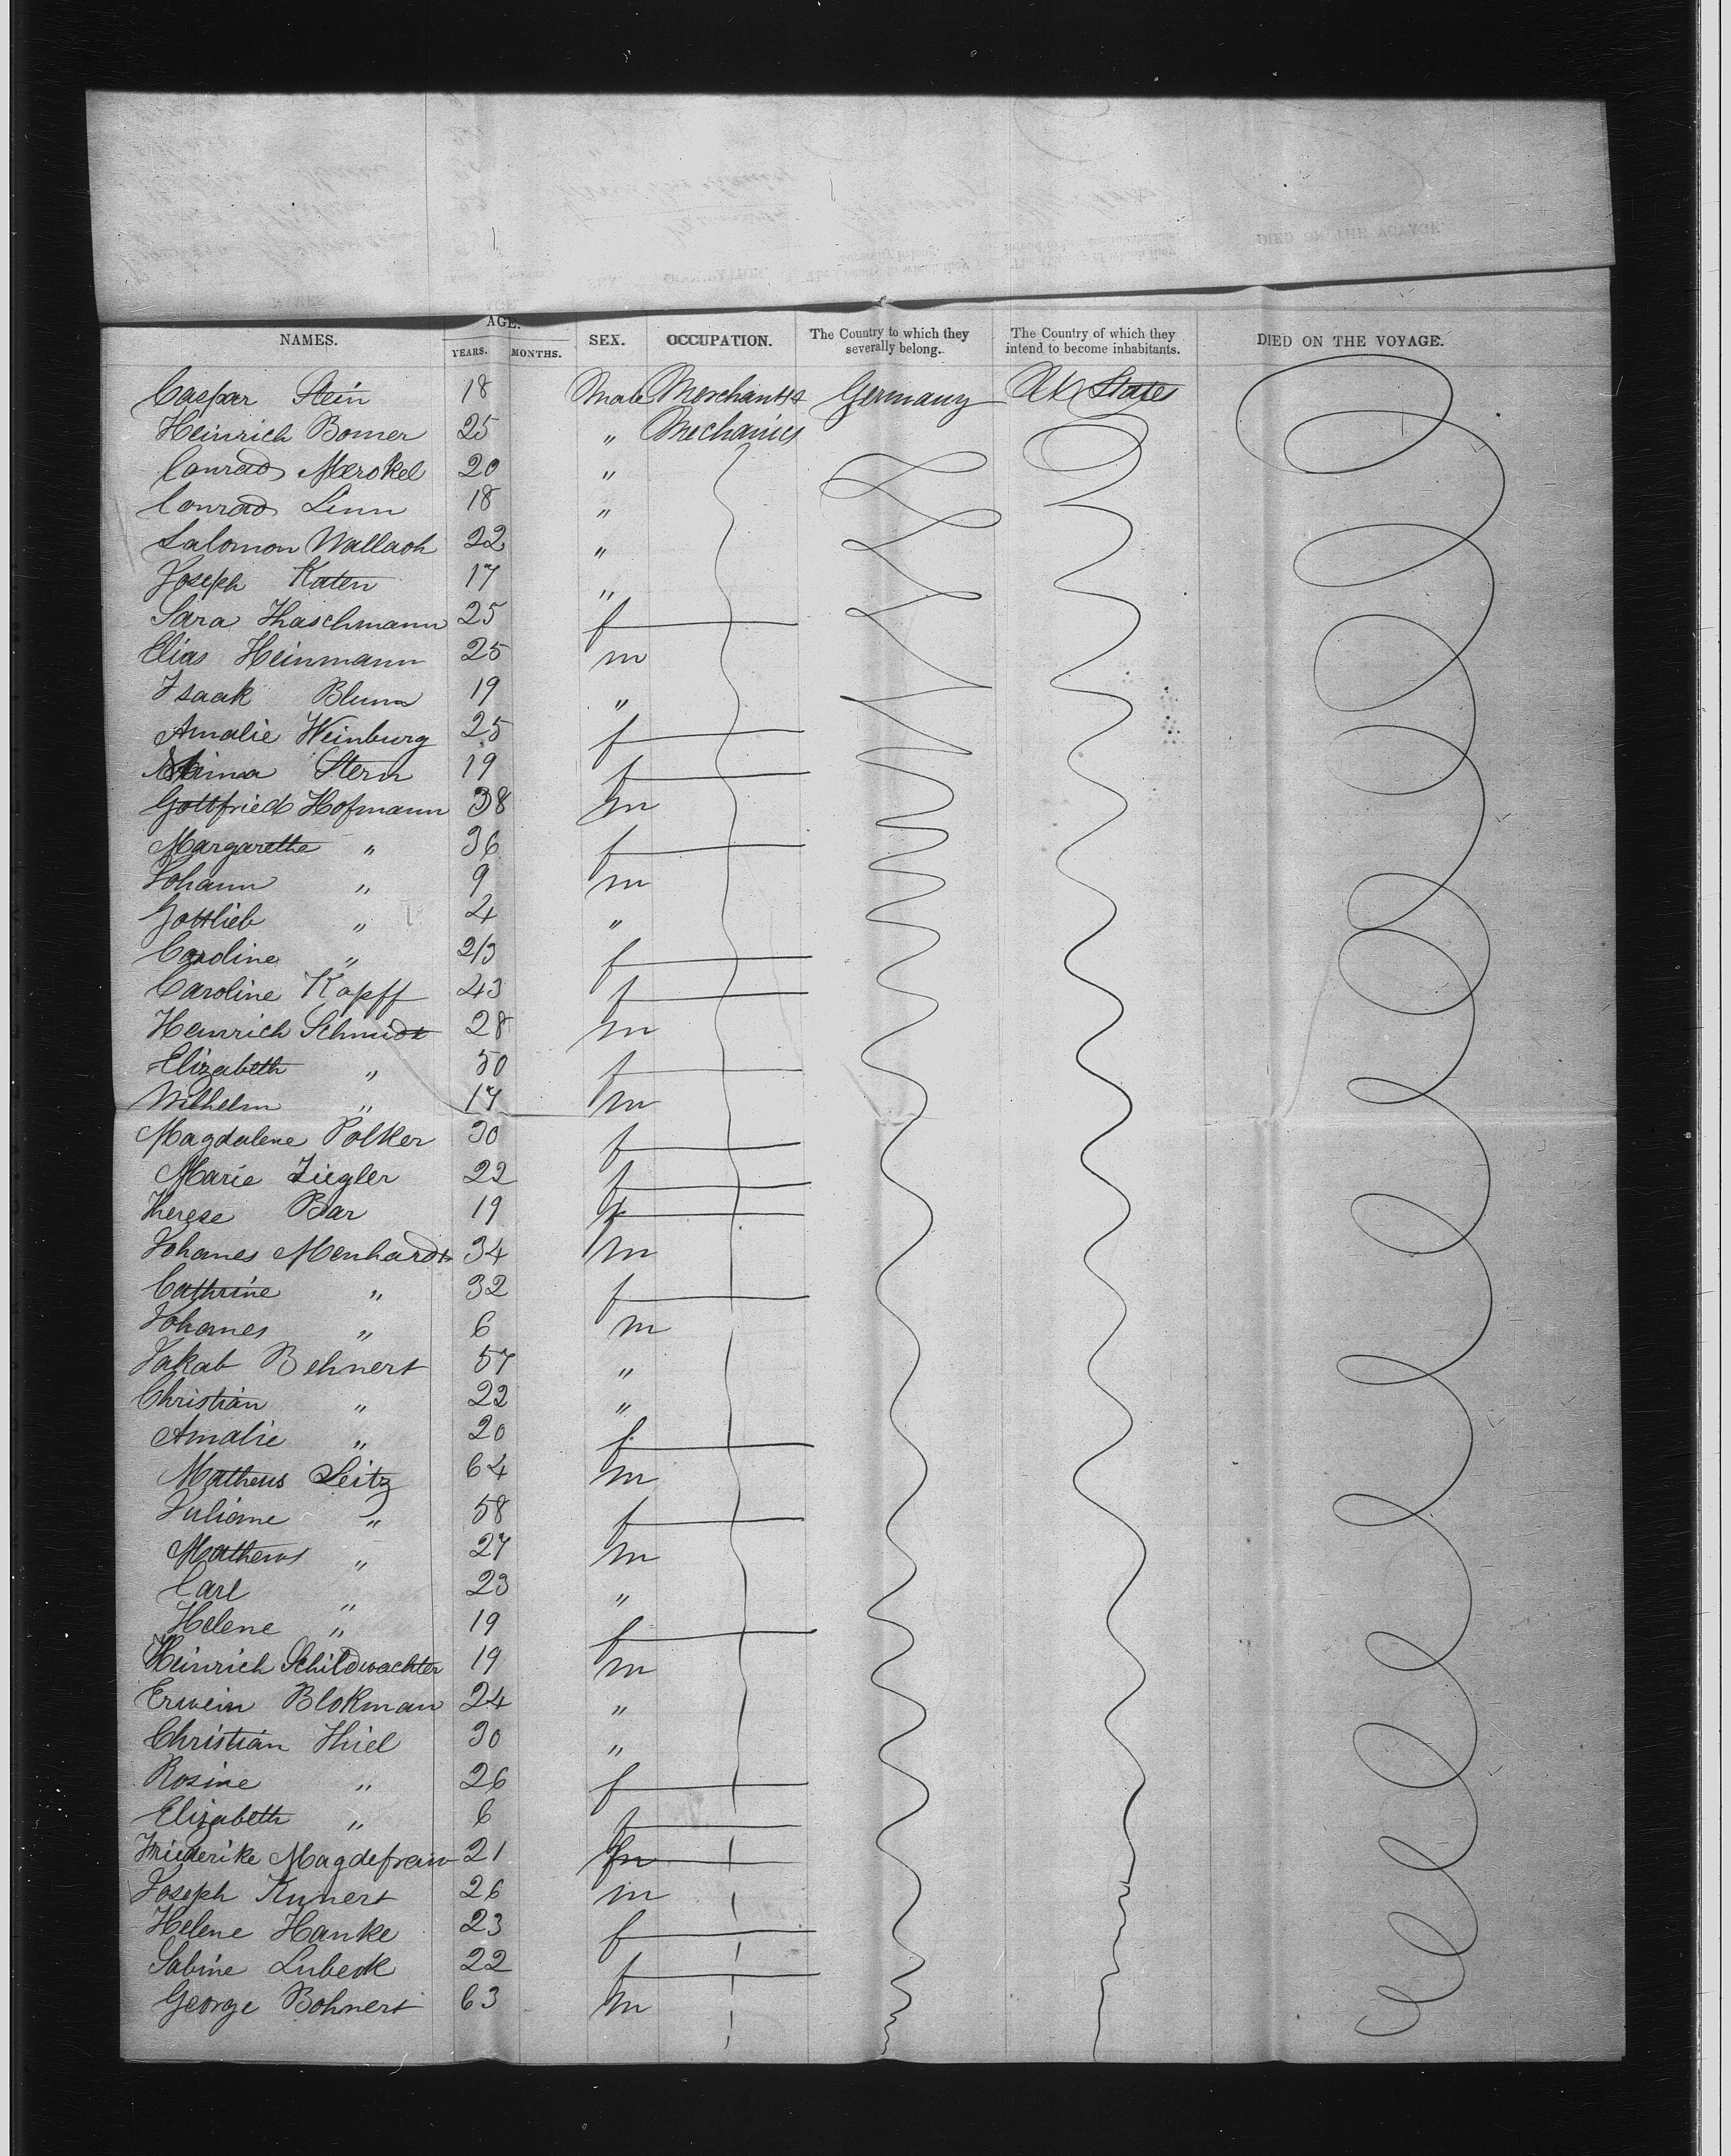 NAMES. AGE. SEX. OCCUPATION. The Country to which they severally belong. The Country of which they intend to become inhabitants. DIED ON THE VOYAGE.
YEARS. MONTHS.
Caspar Stein 18 Male Merchants Germany Ut States
Heinrich Bomer 25 " Mechanics
Conrad Merokel 20 "
Conrad Linn 18 "
Salomon Wallach 22 "
Joseph Katen 17 "
Sara Haschmann 25 f
Elias Heinmann 25 m
Isaak Blum 19 "
Amalie Weinburg 25 f
Stern 19 f
Gottfried Hofmann 38 m
Margarethe " 36 f
Johann " 9 m
Gottlieb " 4 "
Caroline " 2/3 f
Caroline Kopff 43 f
Heinrich Schmidt 28 m
Elizabeth " 50 f
Wilhelm " 17 m
Magdalene Polker 30 f
Marie Ziegler 22 f
Therese Bar 19 f
Johanes Menhardt 34 m
Cathrine " 32 f
Johanes " 6 m
Jakab Behnert 57 "
Christian " 22 "
Amalie " 20 f
Matheus Seitz 64 m
Juliane " 58 f
Matheus " 27 m
Carl " 23 "
Helene " 19 f
Heinrich Schildwachter 19 m
Erwein Blokman 24 "
Christian Thiel 30 "
Rosine " 26 f
Elizabeth " 6 f
Friederike Magdefrau 21 f
Joseph Kunert 26 m
Helene Hanke 23 f
Sabine Lubeck 22 f
George Bohnert 63 m